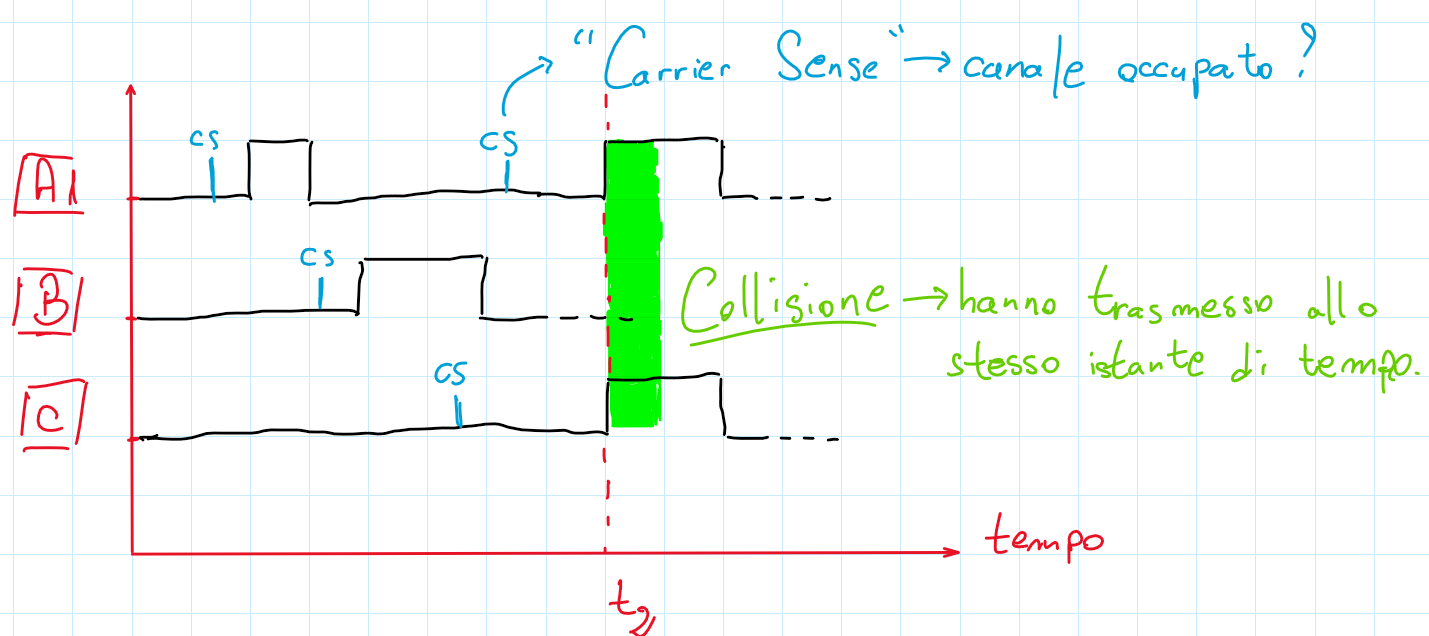 “Carrier Sense” → canale occupato?
CS
CS
A1
CS
B
Collisione → hanno trasmesso allo
stesso istante di tempo.
CS
C
tempo
t2